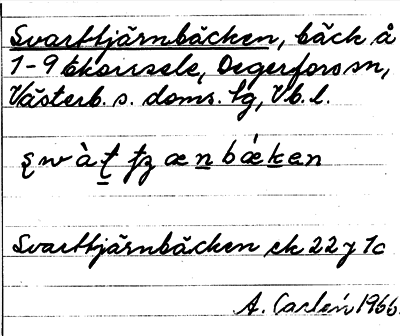 Svarttjärnbäcken, bäck å
1-9 Ekorrsele, Degerfors sn,
Västerb. s. doms. tg, Vb. l.
Svarttjärnbäcken ek 22 J 1c
A. Carlén 1966.